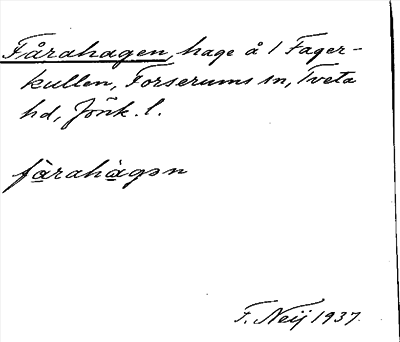 Fårahagen, hage å 1 Fager-
kullen, Forserums sn, Tveta
hd, Jönk. l.
fàrahàgən
F. Neij 1937.